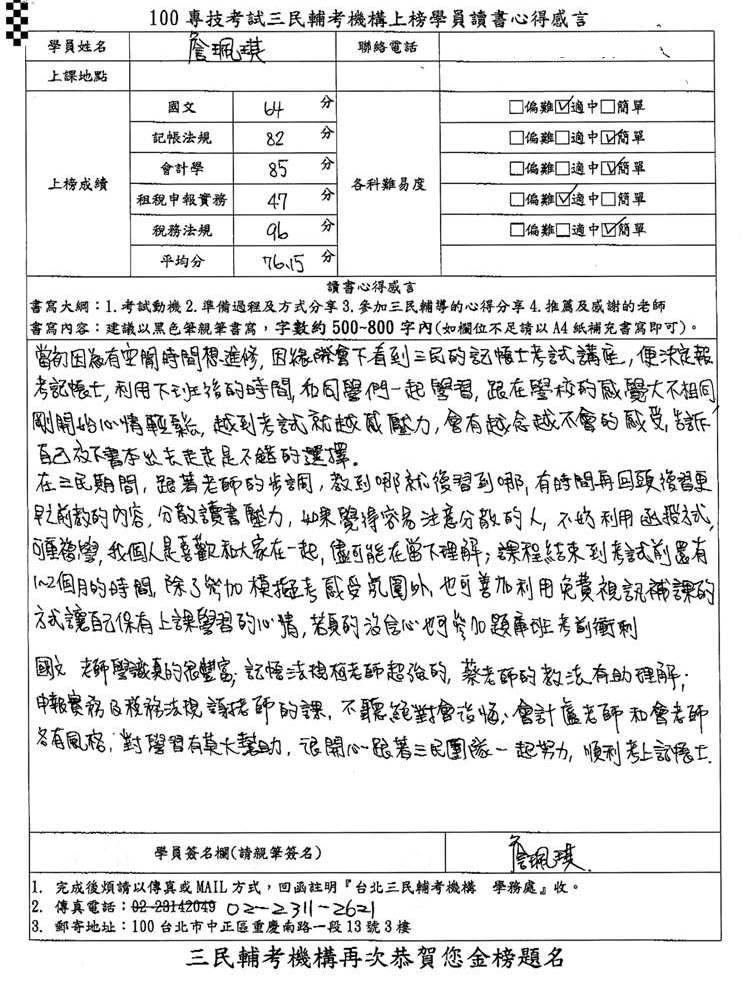 100 專技考試三民輔考機構上榜學員讀書心得感言
學員姓名 詹珮琪 聯絡電話
上課地點
上榜成績 各科難易度
國文 64 分 □偏難☑適中□簡單
記帳法規 82 分 □偏難□適中☑簡單
會計學 85 分 □偏難□適中☑簡單
租稅申報實務 47 分 □偏難☑適中□簡單
稅務法規 96 分 □偏難□適中☑簡單
平均分 76.15 分
讀書心得感言
書寫大綱：1.考試動機 2.準備過程及方式分享 3.參加三民輔導的心得分享 4.推薦及感謝的老師
書寫內容：建議以黑色筆親筆書寫，字數約 500~800 字內(如欄位不足請以 A4 紙補充書寫即可)。
當初因為有空閒時間想進修，因緣際會下看到三民的記帳士考試講座，便決定報
考記帳士，利用下班後的時間，和同學們一起學習，跟在學校的感覺大不相同
剛開始心情輕鬆，越到考試就越感壓力，會有越念越不會的感受，告訴
自己放下書本出去走走是不錯的選擇。
在三民期間，跟著老師的步調，教到哪就復習到哪，有時間再回頭復習更
早之前教的內容，分散讀書壓力，如果覺得容易注意分散的人，不妨利用函授方式，
可重複學，我個人是喜歡和大家在一起，儘可能在當下理解；課程結束到考試前還有
1~2個月的時間，除了參加模擬考感受氛圍外，也可善加利用免費視訊補課的
方式讓自己保有上課學習的心情，若真的沒信心也可參加題庫班考前衝刺
國文 老師學識真的很豐富；記帳法規 老師超強的，蔡老師的教法有助理解；
申報實務及稅務法規 老師的課，不聽絕對會後悔；會計盧老師和曾老師
各有風格，對學習有莫大幫助，很開心跟著三民團隊一起努力，順利考上記帳士.
學員簽名欄(請親筆簽名) 詹珮琪
1. 完成後煩請以傳真或 MAIL 方式，回函註明『台北三民輔考機構 學務處』收。
2. 傳真電話：02-23142049 02-2311-2621
3. 郵寄地址：100 台北市中正區重慶南路一段 13 號 3 樓
三民輔考機構再次恭賀您金榜題名